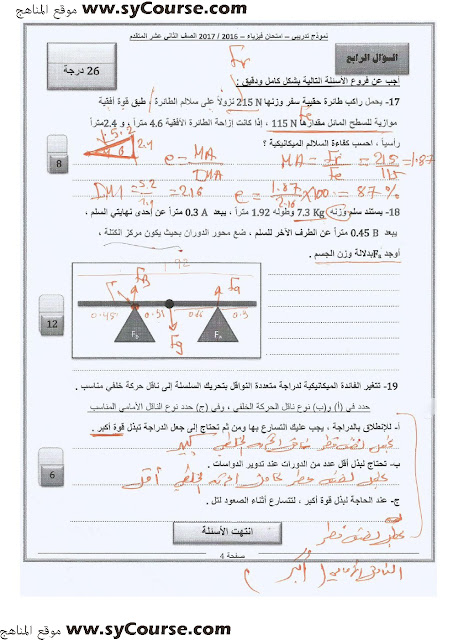 موقع المناهج www.syCourse.com
نموذج تدريبي – امتحان فيزياء – 2016 / 2017 الصف الثاني عشر المتقدم
26 درجة
السؤال الرابع
Fr
أجب عن فروع الأسئلة التالية بشكل كامل ودقيق :
17- يحمل راكب طائرة حقيبة سفر وزنها 215 N نزولاً على سلالم الطائرة ، طبق قوة أفقية
Fe
موازية للسطح المائل مقدارها 115 N ، إذا كانت إزاحة الطائرة الأفقية 4.6 متراً و 2.4متراً
رأسياً ، احسب كفاءة السلالم الميكانيكية ؟
5.2
2.4
8
e = MA / IMA
MA = Fr / Fe = 215 / 115 = 1.87
IMA = 5.2 / 2.4 = 2.16
e = 1.87 / 2.16 × 100 = 87 %
18- يستند سلم وزنه 7.3 Kg وطوله 1.92 متراً ، يبعد A 0.3 متراً عن إحدى نهايتي السلم ،
يبعد B 0.45 متراً عن الطرف الآخر للسلم ، ضع محور الدوران بحيث يكون مركز الكتلة ،
أوجد Fₐ بدلالة وزن الجسم .
1.92
FB
Fa
0.45
0.51
0.66
0.3
Fb
Fa
Fg
12
19- تتغير الفائدة الميكانيكية لدراجة متعددة النواقل بتحريك السلسلة إلى ناقل حركة خلفي مناسب .
حدد في (أ) و(ب) نوع ناقل الحركة الخلفي ، وفي (ج) حدد نوع الناقل الأمامي المناسب
أ- للإنطلاق بالدراجة ، يجب عليك التسارع بها ومن ثم تحتاج إلى جعل الدراجة تبذل قوة أكبر .
كبير
ب- تحتاج لبذل أقل عدد من الدورات عند تدوير الدواسات .
أقل
6
ج- عند الحاجة لبذل قوة أكبر ، لتتسارع أثناء الصعود لتل .
نصف قطر
انتهت الأسئلة
صفحة 4
أكبر
موقع المناهج www.syCourse.com